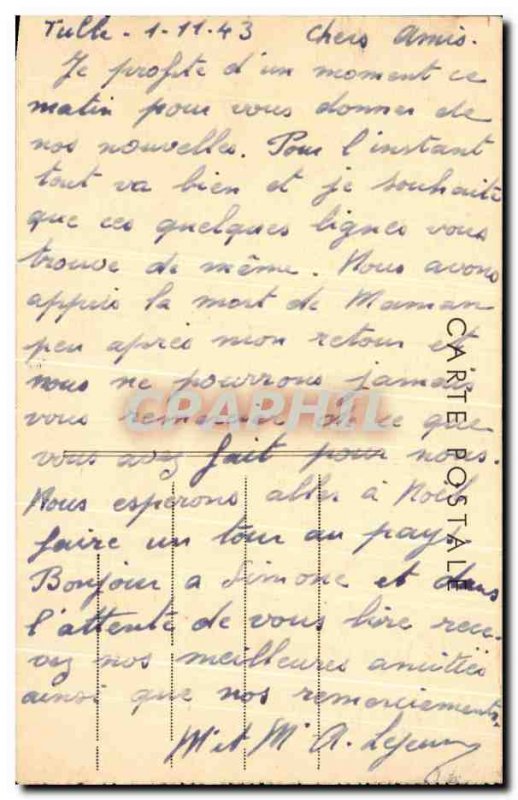 Tulle - 1-11-43 Chers Amis.
Je profite d'un moment ce
matin pour vous donner de
nos nouvelles. Pour l'instant
tout va bien et je souhaite
que ces quelques lignes vous
trouve de même. Nous avons
appris la mort de Maman
peu après mon retour et
nous ne pourrons jamais
vous remercier de ce que
vous avez fait pour nous.
Nous espérons aller à Noël
faire un tour au pays.
Bonjour a Simone et dans
l'attente de vous lire rece-
vez nos meilleures amitiés
ainsi que nos remerciements.
Mr et Me A. Lejeune
CARTE POSTALE
CPAPHIL